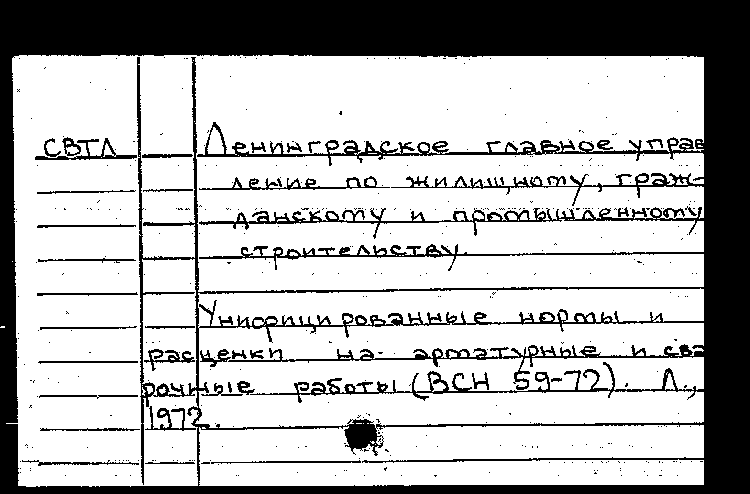 СВТЛ Ленинградское главное управ
ление по жилищному, граж-
данскому и промышленному
строительству.
Унифицированные нормы и
расценки на арматурные и сва
рочные работы (ВСН 59-72). Л.,
1972.